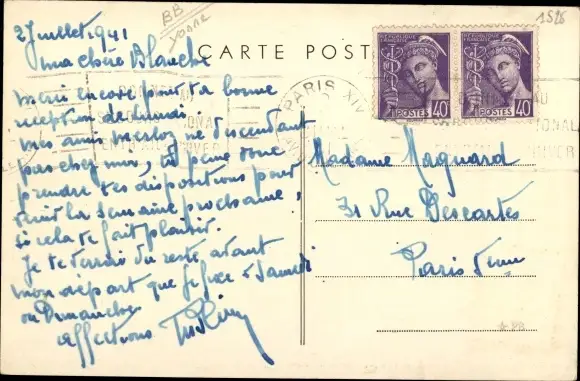 BB
YONNE
1526
CARTE POST
RÉPUBLIQUE FRANÇAISE
POSTES 40
RÉPUBLIQUE FRANÇAISE
POSTES 40
PARIS XIV
2 Juillet 1941
ma chère Blanche
Merci encore pour ta bonne
réception de lundi
mes amis ne descendant
pas chez moi, tu peux donc
prendre tes dispositions pour
la semaine prochaine,
si cela te fait plaisir.
Je te verrai du reste, avant
mon départ que je fixe à Samedi
ou Dimanche
affections
Madame Maguard
31 Rue Descartes
Paris Veme